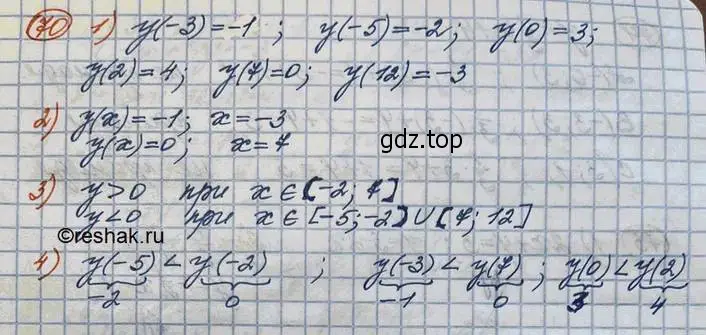 70 1) y(-3)=-1; y(-5)=-2; y(0)=3;
y(2)=4; y(7)=0; y(12)=-3
2) y(x)=-1; x=-3
y(x)=0; x=7
gdz.top
3) y>0 при x∈[-2; 7]
y<0 при x∈[-5;-2]∪[7; 12]
©reshak.ru
4) y(-5)<y(-2); y(-3)<y(7); y(0)<y(2)
-2 0 -1 0 3 4